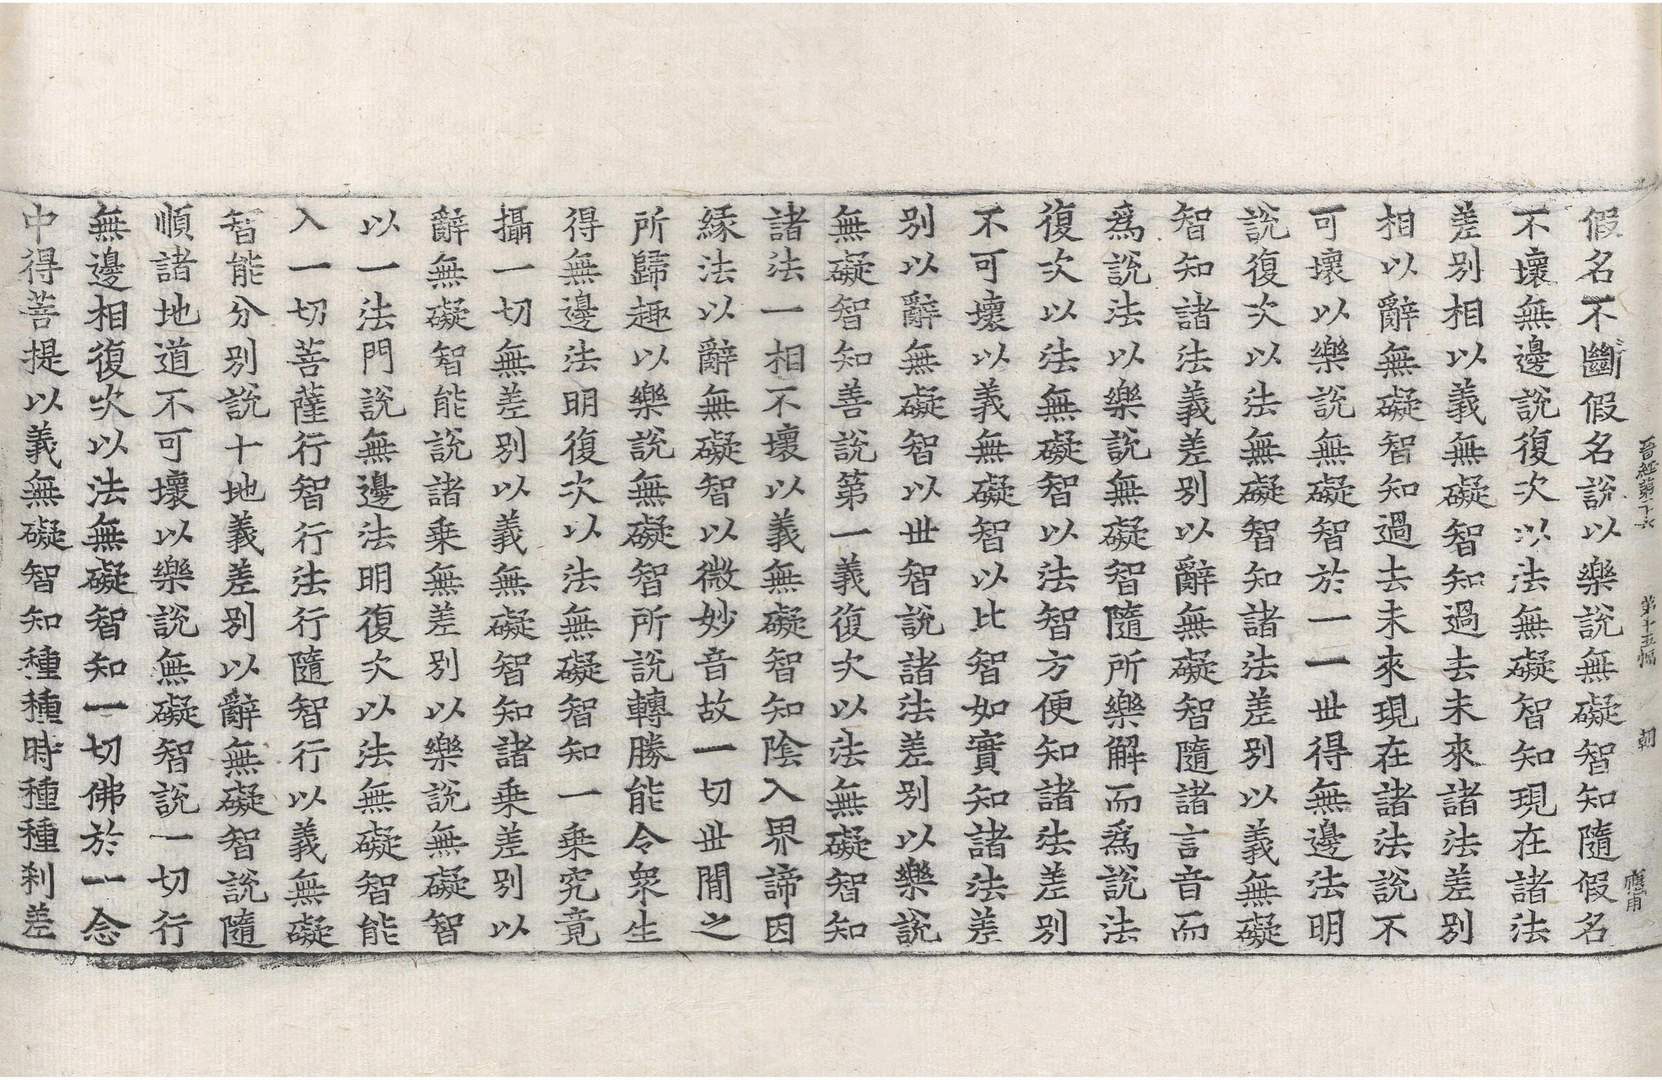 第十五幅
朝
假名不斷假名說以樂說無礙智知隨假名
不壞無邊說復次以法無礙智知現在諸法
差別相以義無礙智知過去未來諸法差別
相以辭無礙智知過去未來現在諸法說不
可壞以樂說無礙智於一一世得無邊法明
說復次以法無礙智知諸法差別以義無礙
智知諸法義差別以辭無礙智隨諸言音而
爲說法以樂說無礙智隨所樂解而爲說法
復次以法無礙智以法智方便知諸法差別
不可壞以義無礙智以比智如實知諸法差
別以辭無礙智以世智說諸法差別以樂說
無礙智知善說第一義復次以法無礙智知
諸法一相不壞以義無礙智知陰入界諦因
緣法以辭無礙智以微妙音故一切世間之
所歸趣以樂說無礙智所說轉勝能令衆生
得無邊法明復次以法無礙智知一乘究竟
攝一切無差別以義無礙智知諸乘差別以
辭無礙智能說諸乘無差別以樂說無礙智
以一法門說無邊法明復次以法無礙智能
入一切菩薩行智行法行隨智行以義無礙
智能分別說十地義差別以辭無礙智說隨
順諸地道不可壞以樂說無礙智說一切行
無邊相復次以法無礙智知一切佛於一念
中得菩提以義無礙智知種種時種種刹差